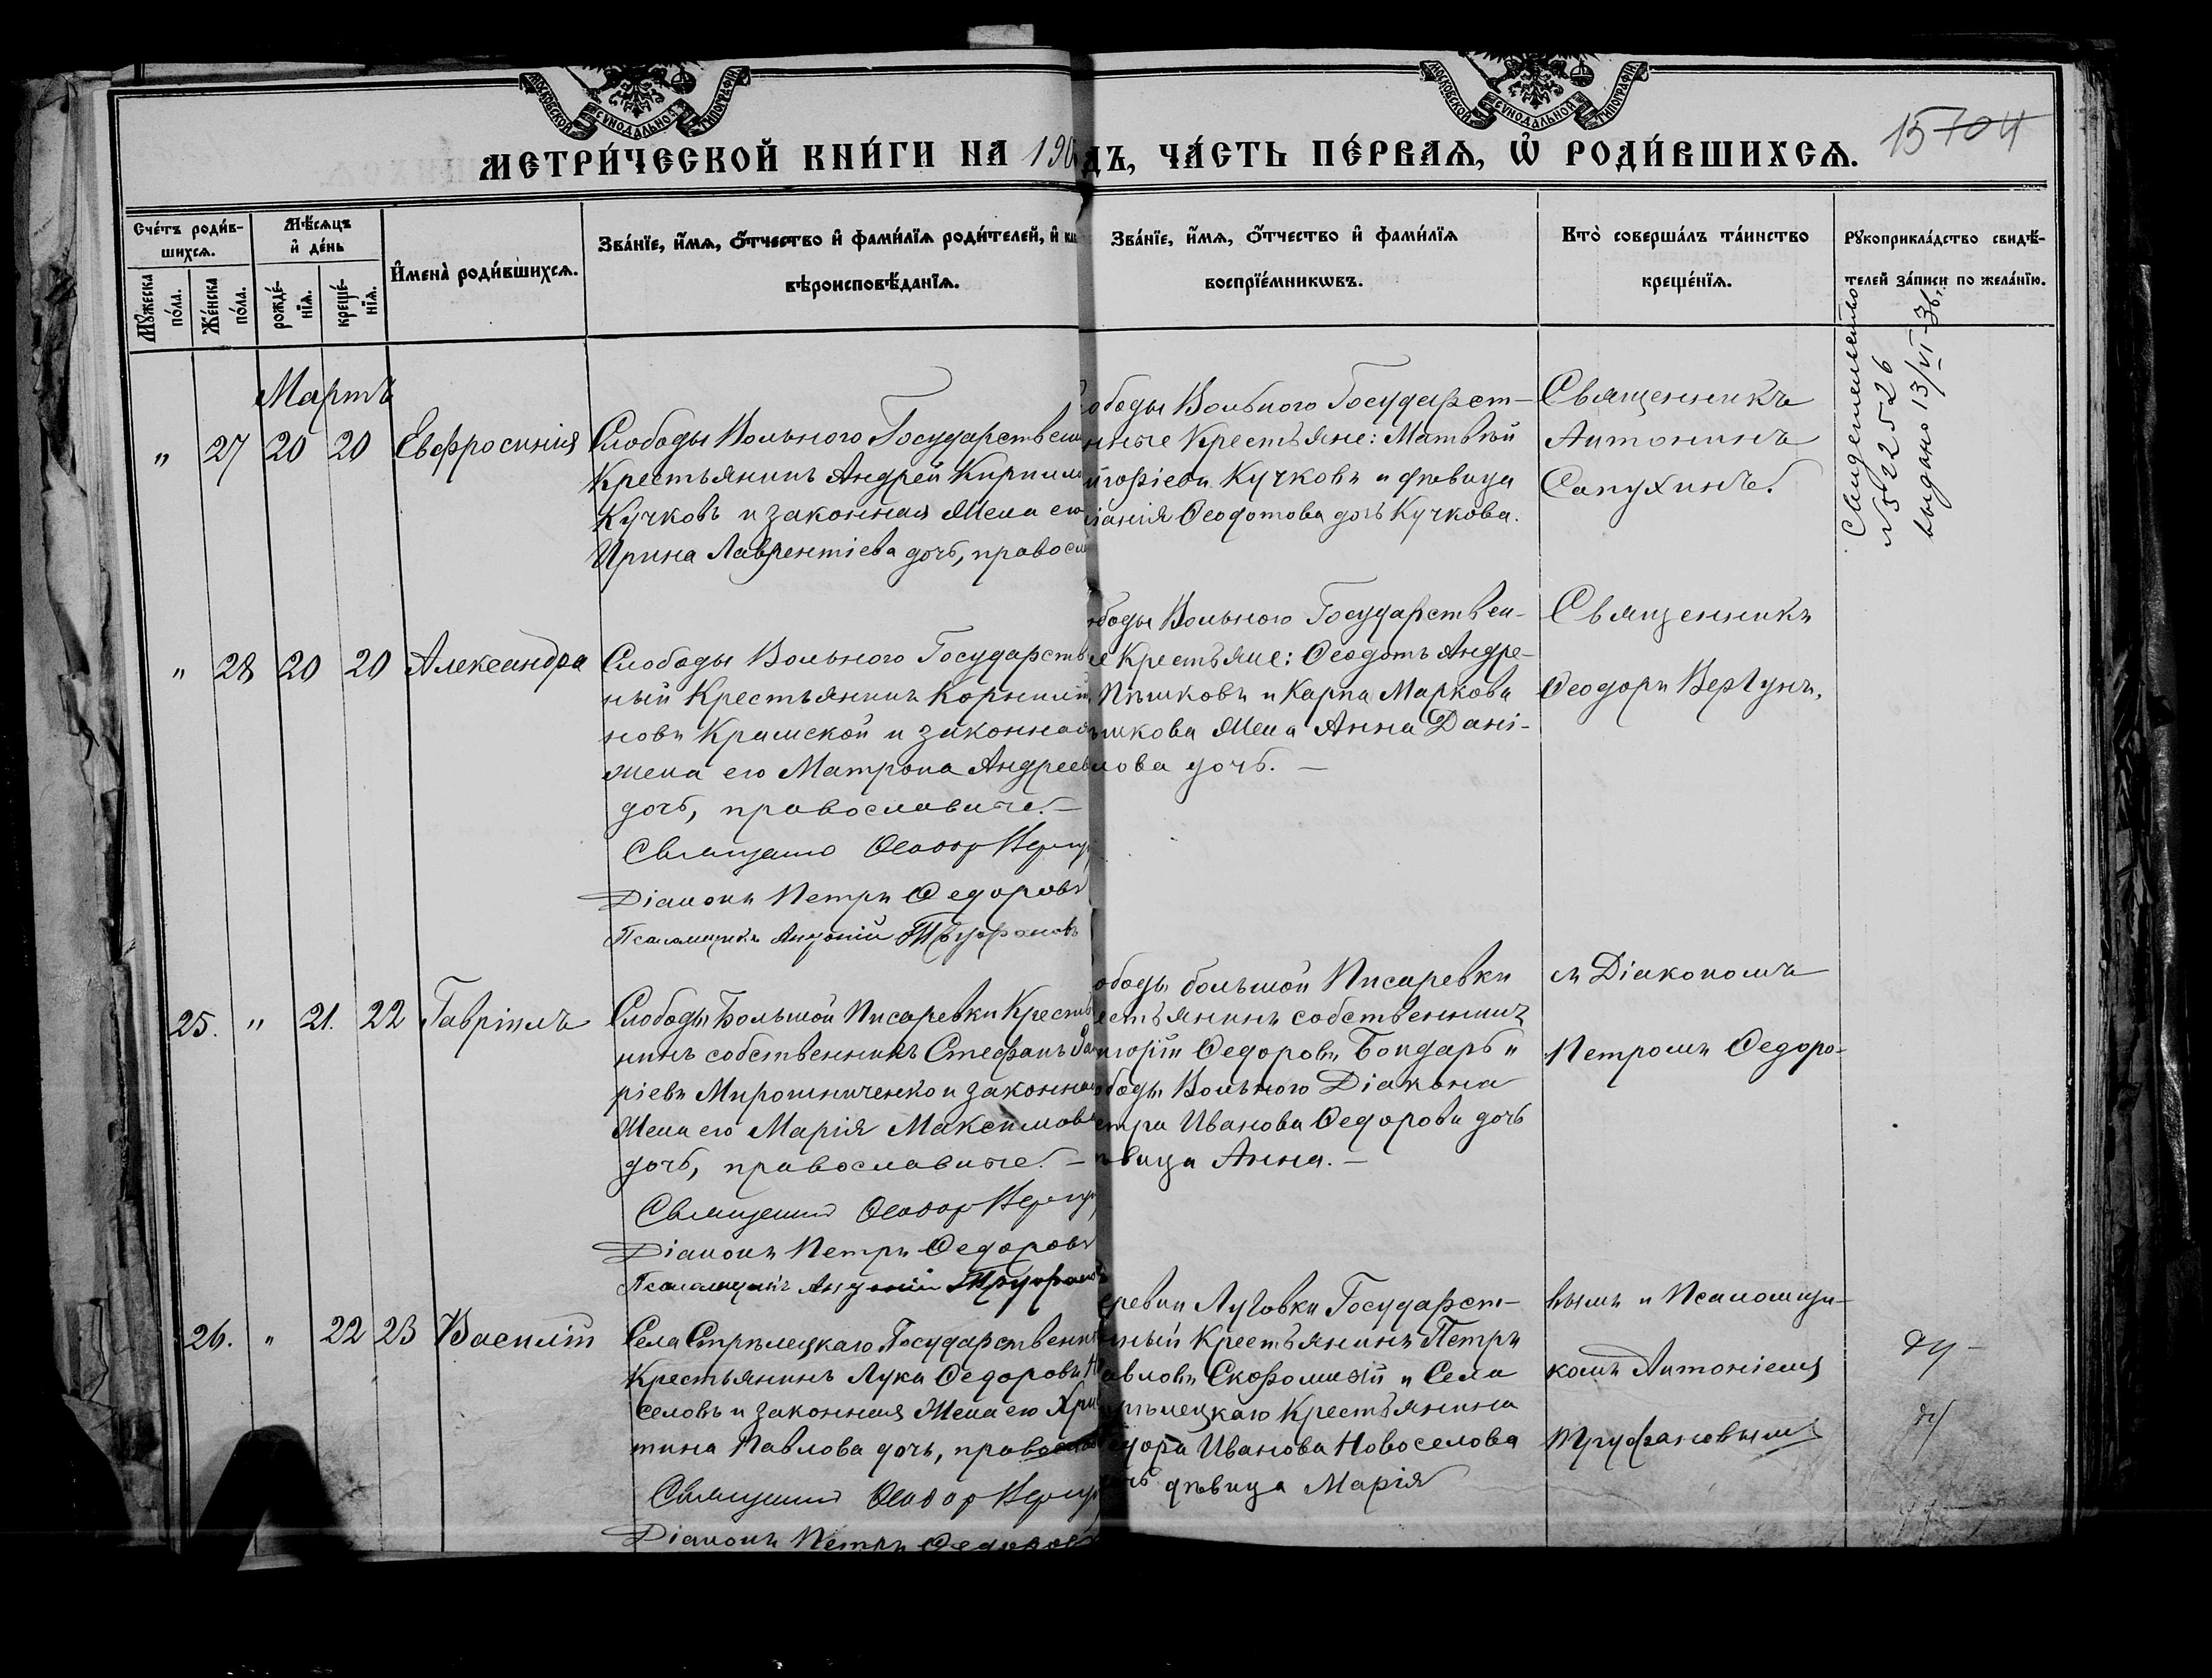 МОСКОВСКОЙ СУНОДАЛЬНОЙ ТИПОГРАФІИ
МОСКОВСКОЙ СУНОДАЛЬНОЙ ТИПОГРАФІИ
МЕТРИ́ЧЕСКОЙ КНИ́ГИ НА 190
дъ, ЧА́СТЬ ПЕ́РВАѦ, Ѡ҆ РОДИ́ВШИХСѦ.
15 704
Сче́тъ роди́в-
шихсѧ.
Мꙋ́жеска
по́ла.
Же́нска
по́ла.
Мѣ́сѧцъ
и҆ де́нь
рожде́-
нїѧ.
креще́-
нїѧ.
И҆мена̀ роди́вшихсѧ.
Зва́нїе, и҆́мѧ, ѻ҆́тчество и҆ фами́лїѧ роди́телей, и҆
вѣроисповѣ́данїѧ.
Зва́нїе, и҆́мѧ, ѻ҆́тчество и҆ фами́лїѧ
воспрїе́мникѡвъ.
Кто̀ соверша́лъ та́инство
креще́нїѧ.
Рꙋкоприкла́дство свидѣ́-
телей за́писи по жела́нїю.
Мартъ
" 27 20 20 Евфросинія
Слободы Вольного Государствен
Крестьянинъ Андрей Кирилл
Кучковъ и законная жена его
Ирина Лаврентіева дочь, правосл
ободы Вольного Государст-
нные Крестьяне: Матвѣй
Кучковъ и дѣвица
Ѳеодотова дочь Кучкова.
Священникъ
Антонинъ
Сапухинъ.
Свидетельство
№ 522526
выдано 13/VI-36г.
" 28 20 20 Александра
Слободы Вольного Государств
ный Крестьянинъ Корнилій
новъ Крамской и законная
жена его Матрона Андреев
дочь, православные.
Священникъ Ѳеодор Вергун
Діаконъ Петръ Ѳедоровъ
Псаломщикъ Антоній Труфановъ
ободы Вольного Государствен-
е Крестьяне: Ѳеодотъ Андре-
Пѣшковъ и Карпа Маркова
ѣшкова жена Анна Дані-
лова дочь.
Священникъ
Ѳеодоръ Вергунъ.
25. " 21. 22 Гавріилъ
Слободы Большой Писаревки Кресть
нинъ собственникъ Стефанъ
ріевъ Мирошниченко и законная
жена его Марія Максимова
дочь, православные.
Священникъ Ѳеодор Вергун
Діаконъ Петръ Ѳедоровъ
Псаломщикъ Антоній Труфановъ
ободы большой Писаревки
естьянинъ собственникъ
игорій Ѳедоровъ Бондарь и
ободы Вольного Діакона
етра Иванова Ѳедорова дочь
ѣвица Анна.
съ Діакономъ
Петромъ Ѳедоро-
26. " 22 23 Василій
Села Стрѣлецкаго Государственн
Крестьянинъ Лука Ѳедоровъ Н
селовъ и законная жена его Хрис
тина Павлова дочь, правосла
Священникъ Ѳеодор Вергун
Діаконъ Петръ Ѳедоровъ
еревни Луговки Государст-
ный Крестьянинъ Петръ
авловъ и Села
рѣлецкаго Крестьянина
едора Иванова Новоселова
очь дѣвица Марія
вымъ и Псаломщи-
комъ Антоніемъ
Труфановымъ